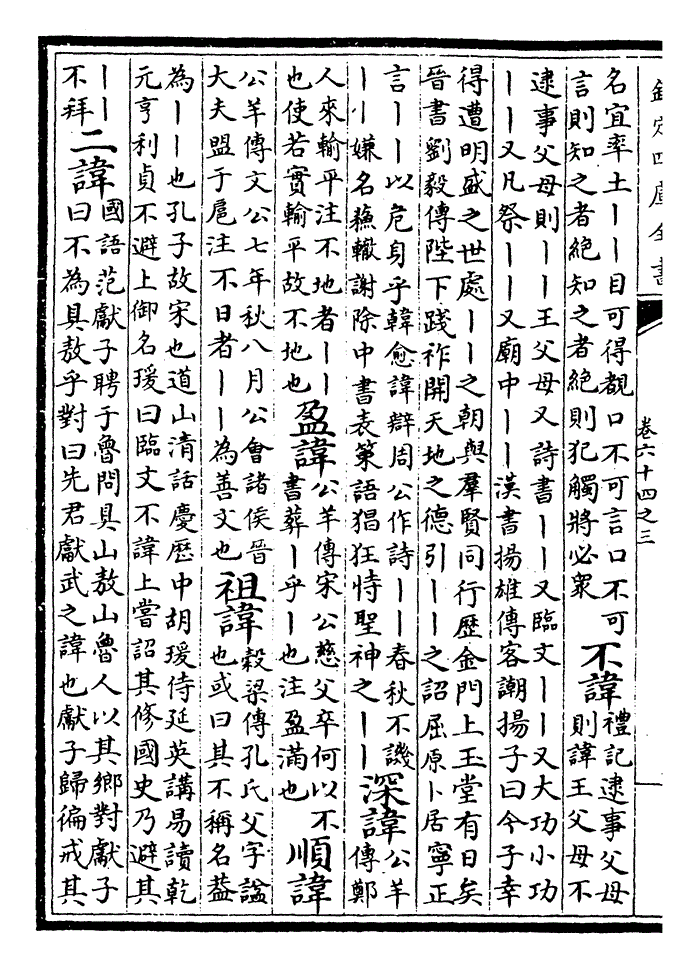 欽定四庫全書
卷六十四之三
名宜率土丨丨目可得覩口不可言口不可
言則知之者絶知之者絶則犯觸將必衆
不諱
禮記逮事父母
則諱王父母不
逮事父母則丨丨王父母又詩書丨丨又臨文丨丨又大功小功
丨丨又凡祭丨丨又廟中丨丨漢書揚雄傳客謿揚子曰今子幸
得遭明盛之世處丨丨之朝與羣賢同行歴金門上玉堂有日矣
晉書劉毅傳陛下踐祚開天地之德引丨丨之詔屈原卜居寧正
言丨丨以危身乎韓愈諱辯周公作詩丨丨春秋不譏
丨丨嫌名蘓轍謝除中書表第語猖狂恃聖神之丨丨
深諱
公羊
傳鄭
人來輸平注不地者丨丨
也使若實輸平故不地也
盈諱
公羊傳宋公慈父卒何以不
書葬丨乎丨也注盈滿也
順諱
公羊傳文公七年秋八月公會諸侯晉
大夫盟于扈注不日者丨丨為善文也
祖諱
榖梁傳孔氏父字諡
也或曰其不稱名葢
為丨丨也孔子故宋也道山清話慶歴中胡瑗侍延英講易讀乾
元亨利貞不避上御名瑗曰臨文不諱上嘗詔其修國史乃避其
丨丨
不拜
二諱
國語范獻子聘于魯問具山敖山魯人以其鄉對獻子
曰不為具敖乎對曰先君獻武之諱也獻子歸徧戒其